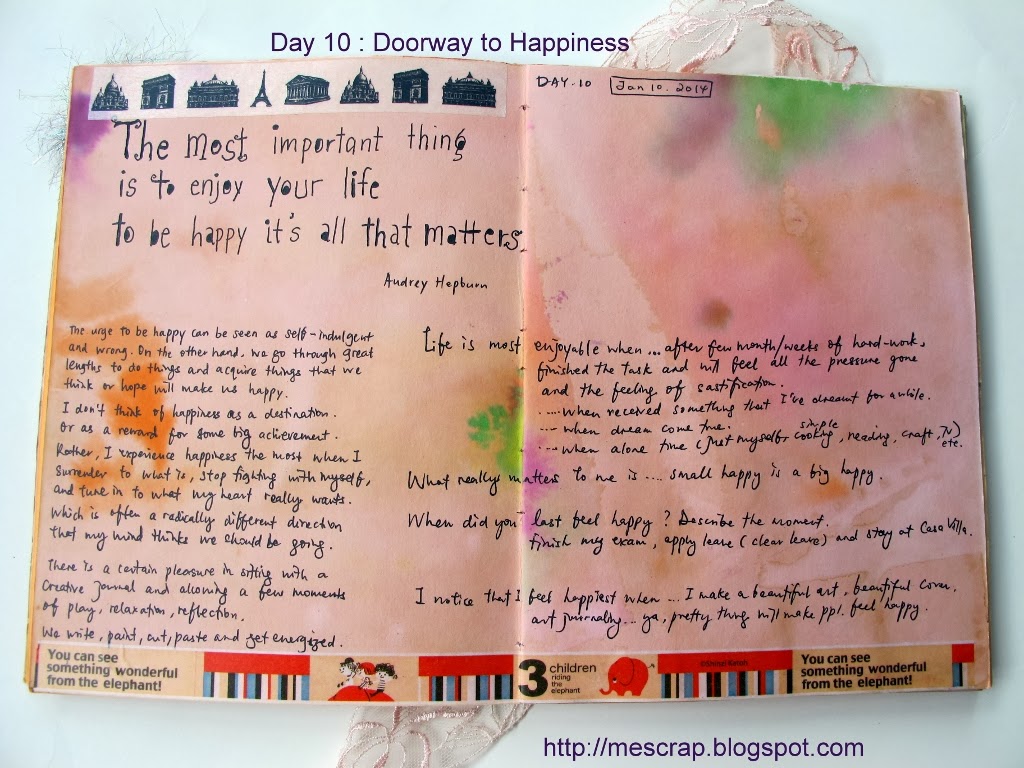 Day 10 : Doorway to Happiness
The most important thing
is to enjoy your life
to be happy it's all that matters
Audrey Hepburn
The urge to be happy can be seen as self-indulgent
and wrong. On the other hand, we go through great
lengths to do things and acquire things that we
think or hope will make us happy.
I don't think of happiness as a destination.
or as a reward for some big achievement.
Rather, I experience happiness the most when I
surrender to what is, stop fighting with myself,
and tune in to what my heart really wants.
Which is often a radically different direction
that my mind thinks we should be going.
There is a certain pleasure in sitting with a
Creative Journal and allowing a few moments
of play, relaxation, reflection.
We write, paint, cut, paste and get energized.
DAY.10 Jan 10. 2014
Life is most enjoyable when ... after few month/weeks of hard-work,
finished the task and will feel all the pressure gone
and the feeling of sastification.
.... when received something that I've dreamt for awhile.
.... when dream come true.
.... when alone time (just myself simple cooking, reading, craft, TV) etc.
What reallys matters to me is .... small happy is a big happy.
When did you last feel happy? Describe the moment.
finish my exam, apply leave (clear leave) and stay at Casa Villa.
I notice that I feel happiest when ... I make a beautiful art, beautiful cover,
art journaling... ya, pretty thing will make ppl. feel happy.
You can see
something wonderful
from the elephant!
3 children
riding
the
elephant
©Shinzi Katoh
You can see
something wonderful
from the elephant!
http://mescrap.blogspot.com